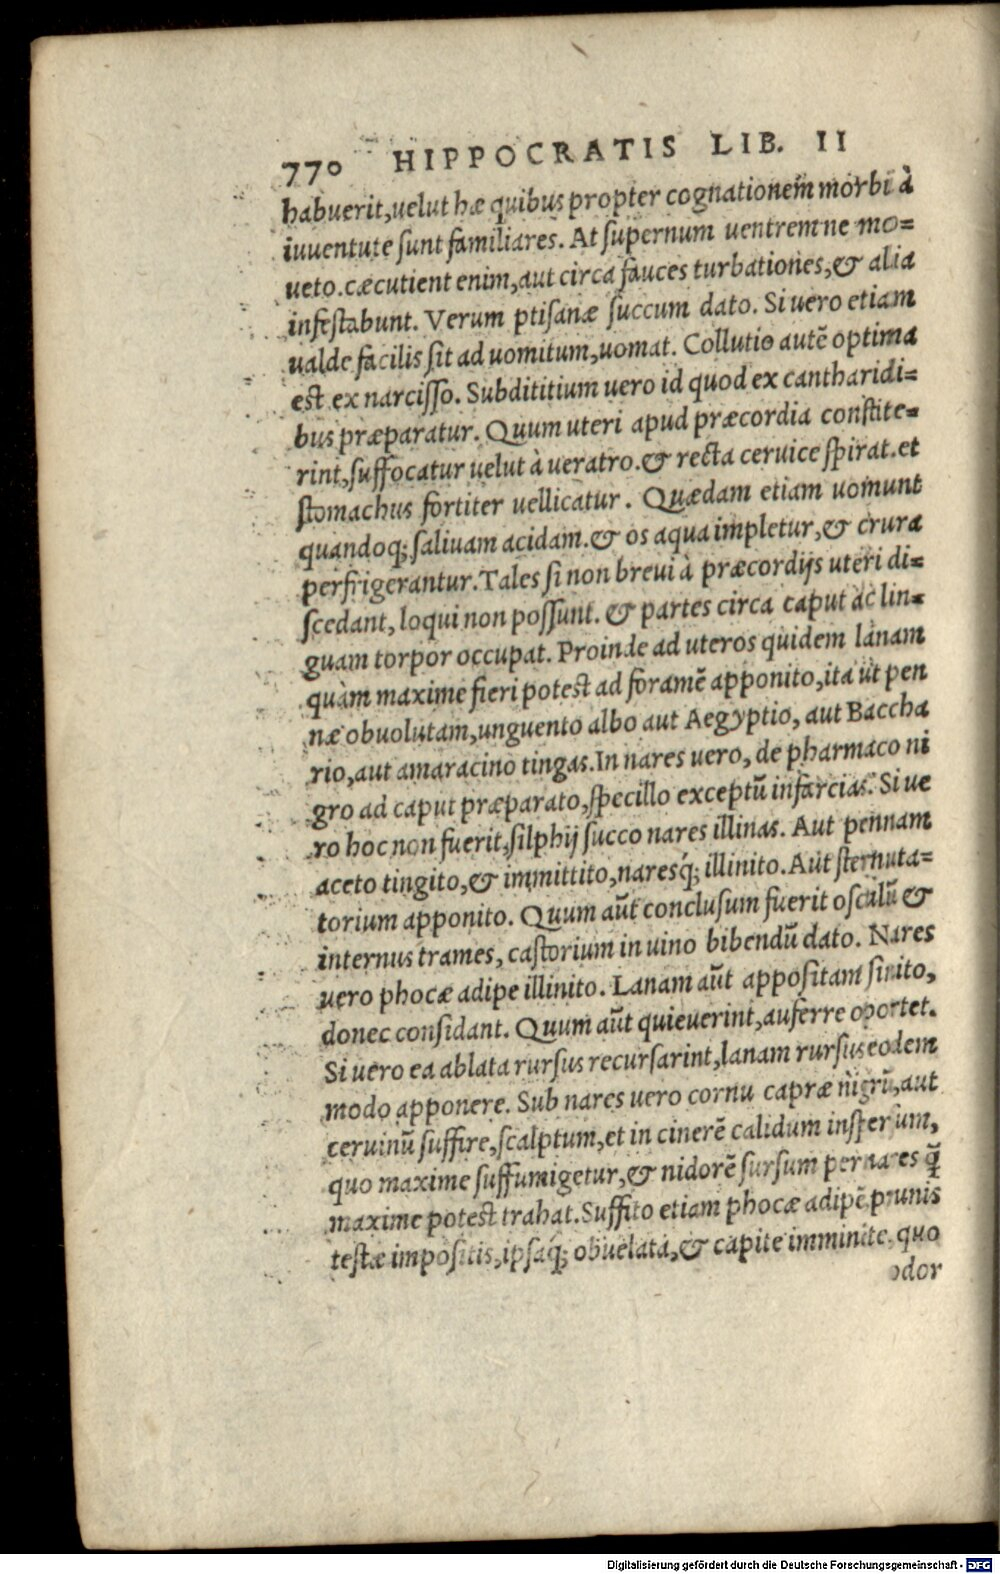 770 HIPPOCRATIS LIB. II
habuerit,uelut hæ quibus propter cognationem morbi à
iuuentute ſunt familiares. At ſupernum uentrem ne mo=
ueto.cæcutient enim,aut circa fauces turbationes,& alia
infeſtabunt. Verum ptiſanæ ſuccum dato. Si uero etiam
ualde facilis ſit ad uomitum,uomat. Collutio autē optima
est ex narciſſo. Subdititium uero id quod ex cantharidi=
bus præparatur. Quum uteri apud præcordia conſtite=
rint,ſuffocatur uelut à ueratro.& recta ceruice ſpirat.et
ſtomachus fortiter uellicatur. Quædam etiam uomunt
quandoq; ſaliuam acidam.& os aqua impletur,& crura
perfrigerantur.Tales ſi non breui à præcordijs uteri di=
ſcedant, loqui non poſſunt. & partes circa caput ac lin=
guam torpor occupat. Proinde ad uteros quidem lanam
quàm maxime fieri potest ad foramē apponito,ita ut pen
næ obuolutam,unguento albo aut Aegyptio, aut Baccha
rio,aut amaracino tingas.In nares uero, de pharmaco ni
gro ad caput præparato,ſpecillo exceptū infarcias. Si ue
ro hoc non fuerit,ſilphij ſucco nares illinas. Aut pennam
aceto tingito,& immittito,naresq́; illinito.Aut ſternuta=
torium apponito. Quum aūt concluſum fuerit oſculū &
internus trames, caſtorium in uino bibendū dato. Nares
uero phocæ adipe illinito. Lanam aūt appoſitam ſinito,
donec conſidant. Quum aūt quieuerint,auferre oportet.
Si uero ea ablata rurſus recurſarint,lanam rurſus eodem
modo apponere. Sub nares uero cornu capræ nigrū,aut
ceruinū ſuffire,ſcalptum,et in cinerē calidum inſperſum,
quo maxime ſuffumigetur,& nidorē ſurſum per nares q̄
maxime potest trahat.Suffito etiam phocæ adipē,prunis
teſtæ impoſitis,ipſaq́; obuelata,& capite imminite. quo
odor
Digitalisierung gefördert durch die Deutsche Forschungsgemeinschaft - DFG